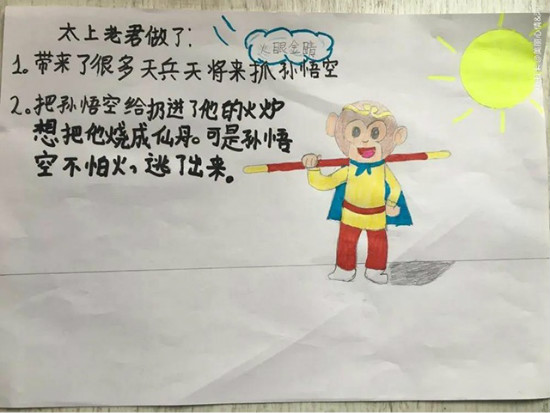 太上老君做了：
火眼金睛
1。带来了很多天兵天将来抓孙悟空
2。把孙悟空给扔进了他的火炉
想把他烧成仙丹。可是孙悟
空不怕火，逃了出来。